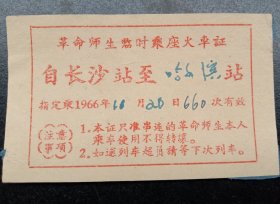 革命师生暂时乘座火车证
自长沙站至哈滨站
指定乘1966年11月28日660次有效
(注意事项)
1.本证只准串连的革命师生本人
乘车使用不得转让。
2.如遇列车超员请等下次列车。